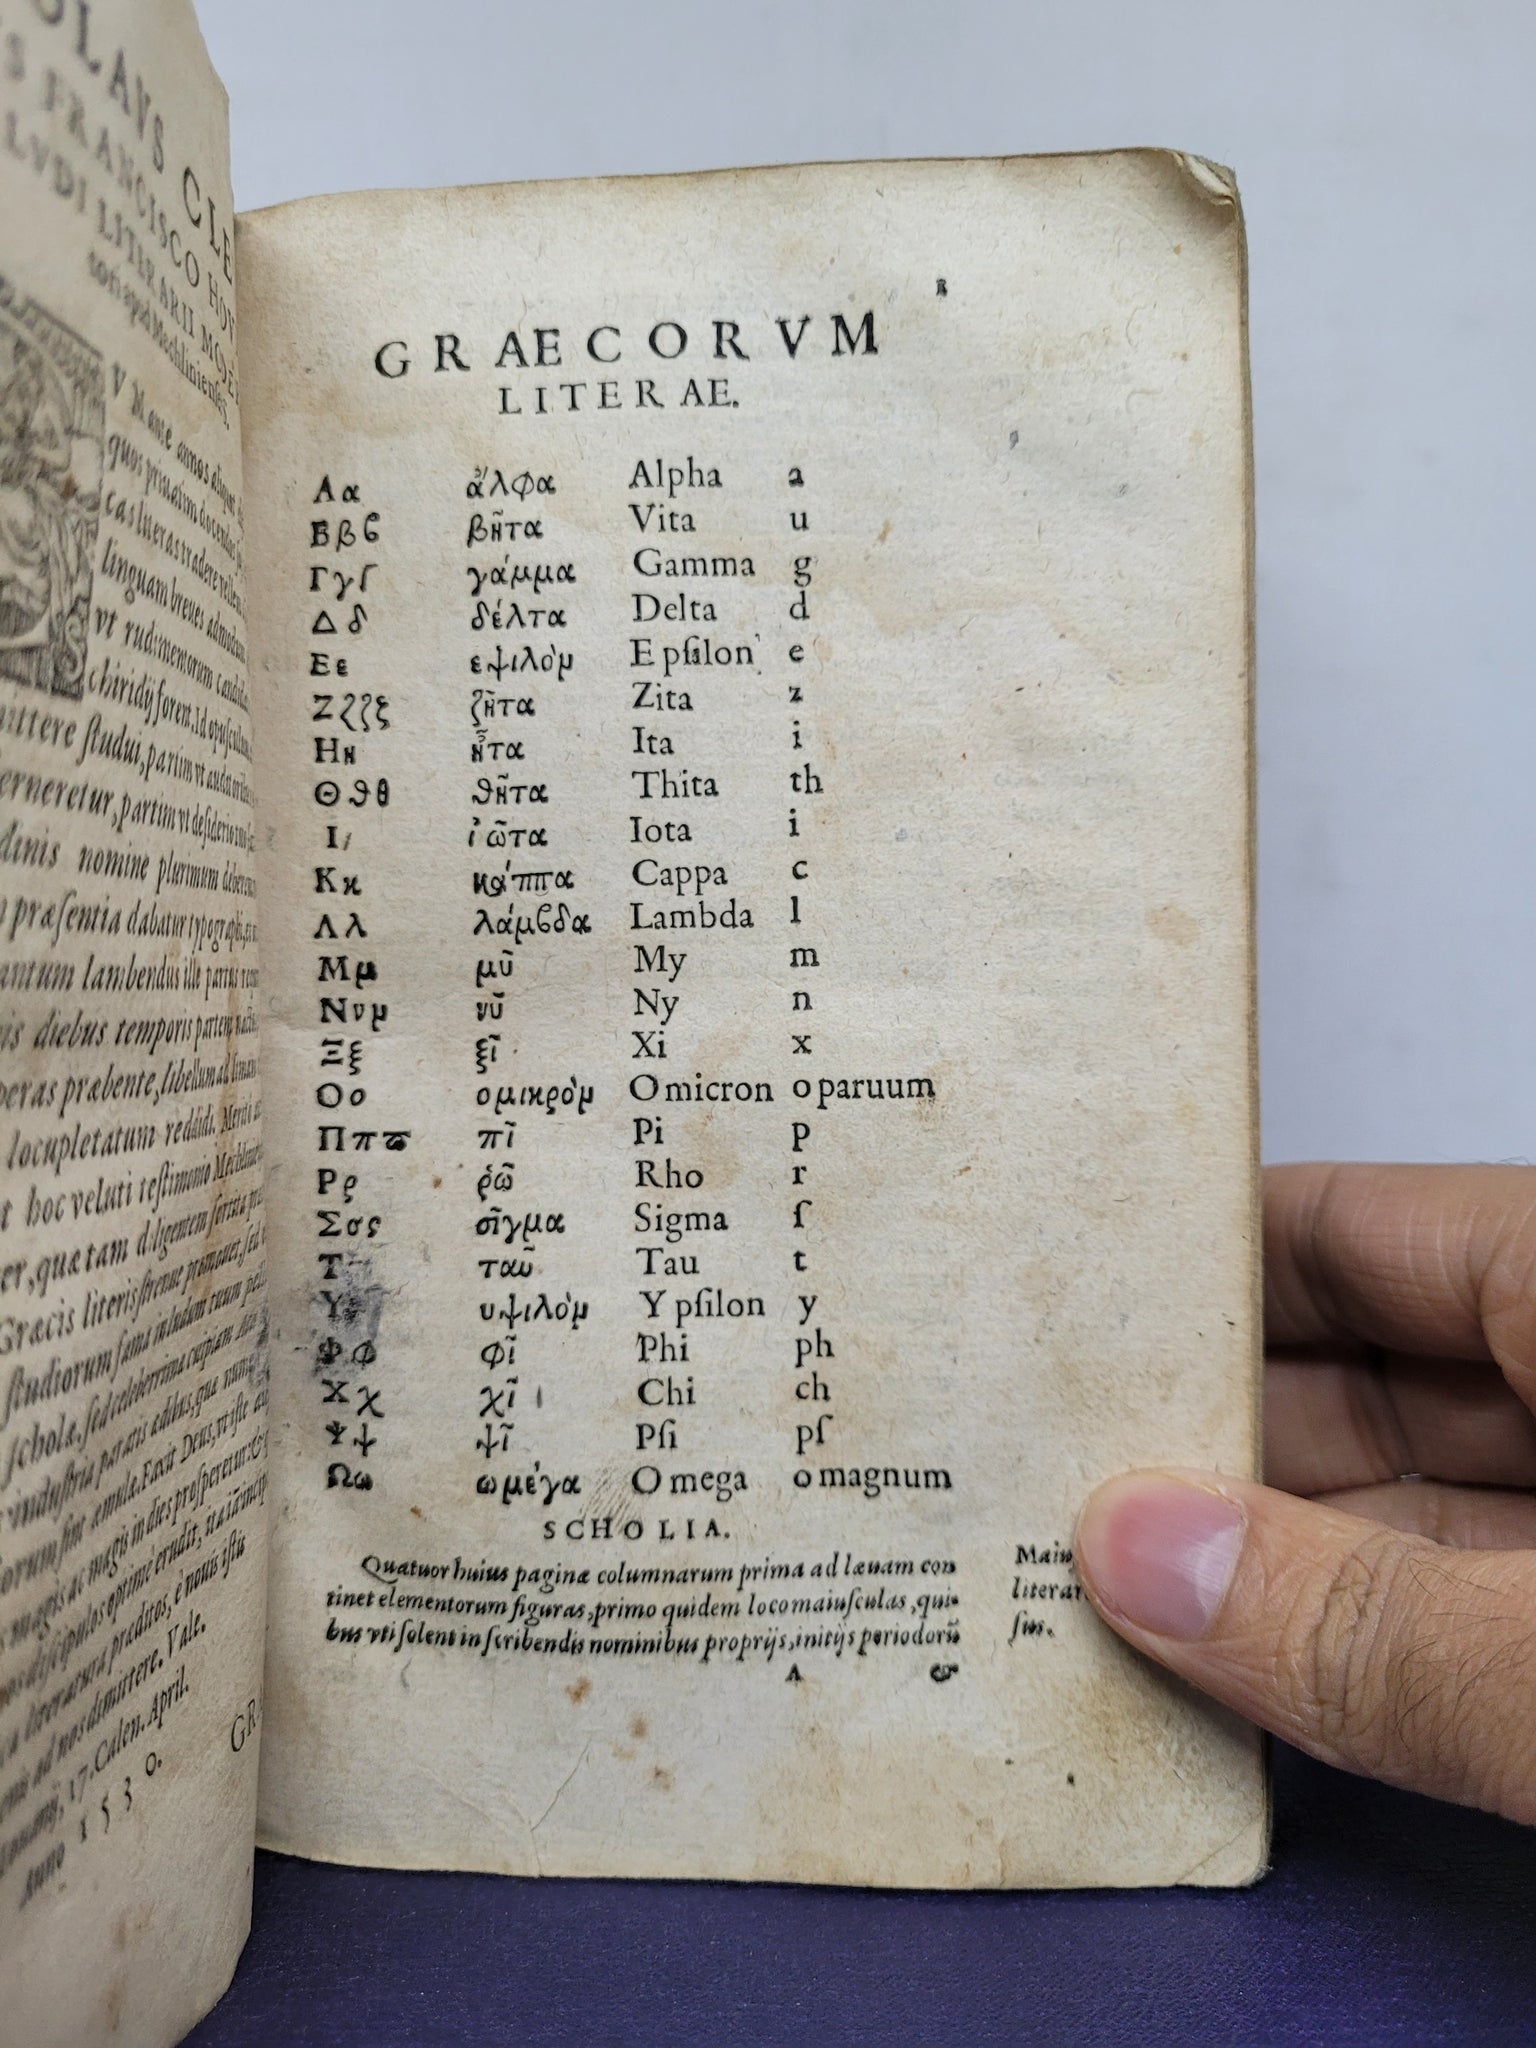 OLAVS CLE
S FRANCISCO HOV
LVDI LITERARII MODE
toti apud Mechlinienses.
V M ante annos aliquot
quos priuatim docendos
cas literas tradere vellem
linguam breues admodum
vt rudimentorum candida
chiridij forent. Id opusculum
mittere studui, partim vt auditorib
erneretur, partim vt desiderio tuo sa
dinis nomine plurimum debere
præsentia dabatur typographi, ei
antum lambendus ille partus
is diebus temporis partem
peras præbente, libellum
locupletatum reddidi. Merito
t hoc veluti testimonio Mechlinen
er, quæ tam diligentem sortita
Græcis literis strenue promouet, sed
studiorum fama in ludum tuum
scholæ. sed celeberrima cuipiam
industria paratis ædibus, quæ nunc
orum sint æmulæ. Faxit Deus, vt iste
magis ac magis in dies prosperetur:
discipulos optime erudit, ita
a literatura præditos, è nouis istis
ad nos dimittere. Vale.
17. Calen. April.
Anno 1530.
GR
GRAECORVM
LITERAE.
Α α ἄλφα Alpha a
Β β ϐ βῆτα Vita u
Γ γ γάμμα Gamma g
Δ δ δέλτα Delta d
Ε ε εψιλὸμ Epſilon e
Ζ ζ ζ ξ ζῆτα Zita z
Η η ἦτα Ita i
Θ ϑ θ ϑῆτα Thita th
Ι ι ἰῶτα Iota i
Κ κ κάππα Cappa c
Λ λ λάμϐδα Lambda l
Μ μ μῦ My m
Ν ν μ νῦ Ny n
Ξ ξ ξῖ Xi x
Ο ο ομικρὸμ Omicron o paruum
Π π ϖ πῖ Pi p
Ρ ρ ῥῶ Rho r
Σ σ ς σῖγμα Sigma ſ
Τ ταῦ Tau t
Υ υψιλὸμ Ypſilon y
Φ φ φῖ Phi ph
Χ χ χῖ Chi ch
Ψ ψ ψῖ Pſi pſ
Ω ω ωμέγα Omega o magnum
SCHOLIA.
Quatuor huius paginæ columnarum prima ad læuam con
tinet elementorum figuras, primo quidem loco maiuſculas, qui-
bus vti ſolent in ſcribendis nominibus proprijs, initijs periodorū
Maiu
literar
ſus.
A &